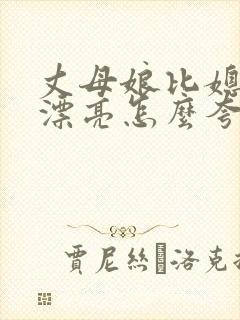 丈母娘比媳
漂亮怎麼夸
賈尼絲洛克